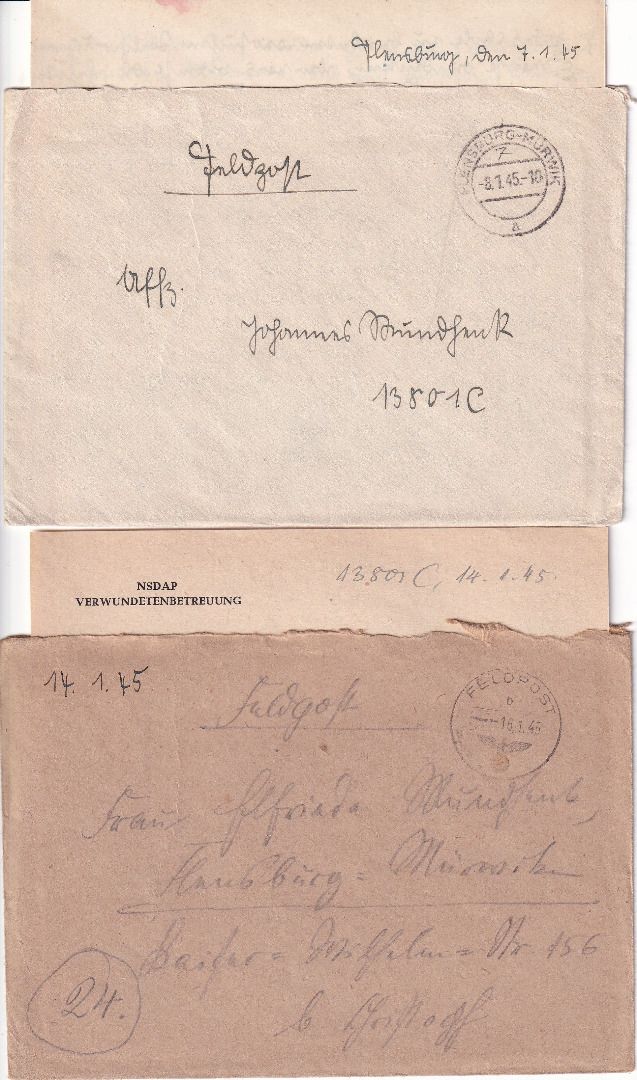 Flensburg, den 7.1.45
Feldpost
FLENSBURG-MÜRWIK
-8.1.45.-10
a
Uffz.
Johannes Mundhenk
13801C
NSDAP
VERWUNDETENBETREUUNG
13801 C, 14.1.45.
14.1.45
Feldpost
FELDPOST
b
16.1.45
Frau Elfriede Mundhenk,
Flensburg=Mürwik
Kaiser=Wilhelm=Str. 156
b. Christoph
24.